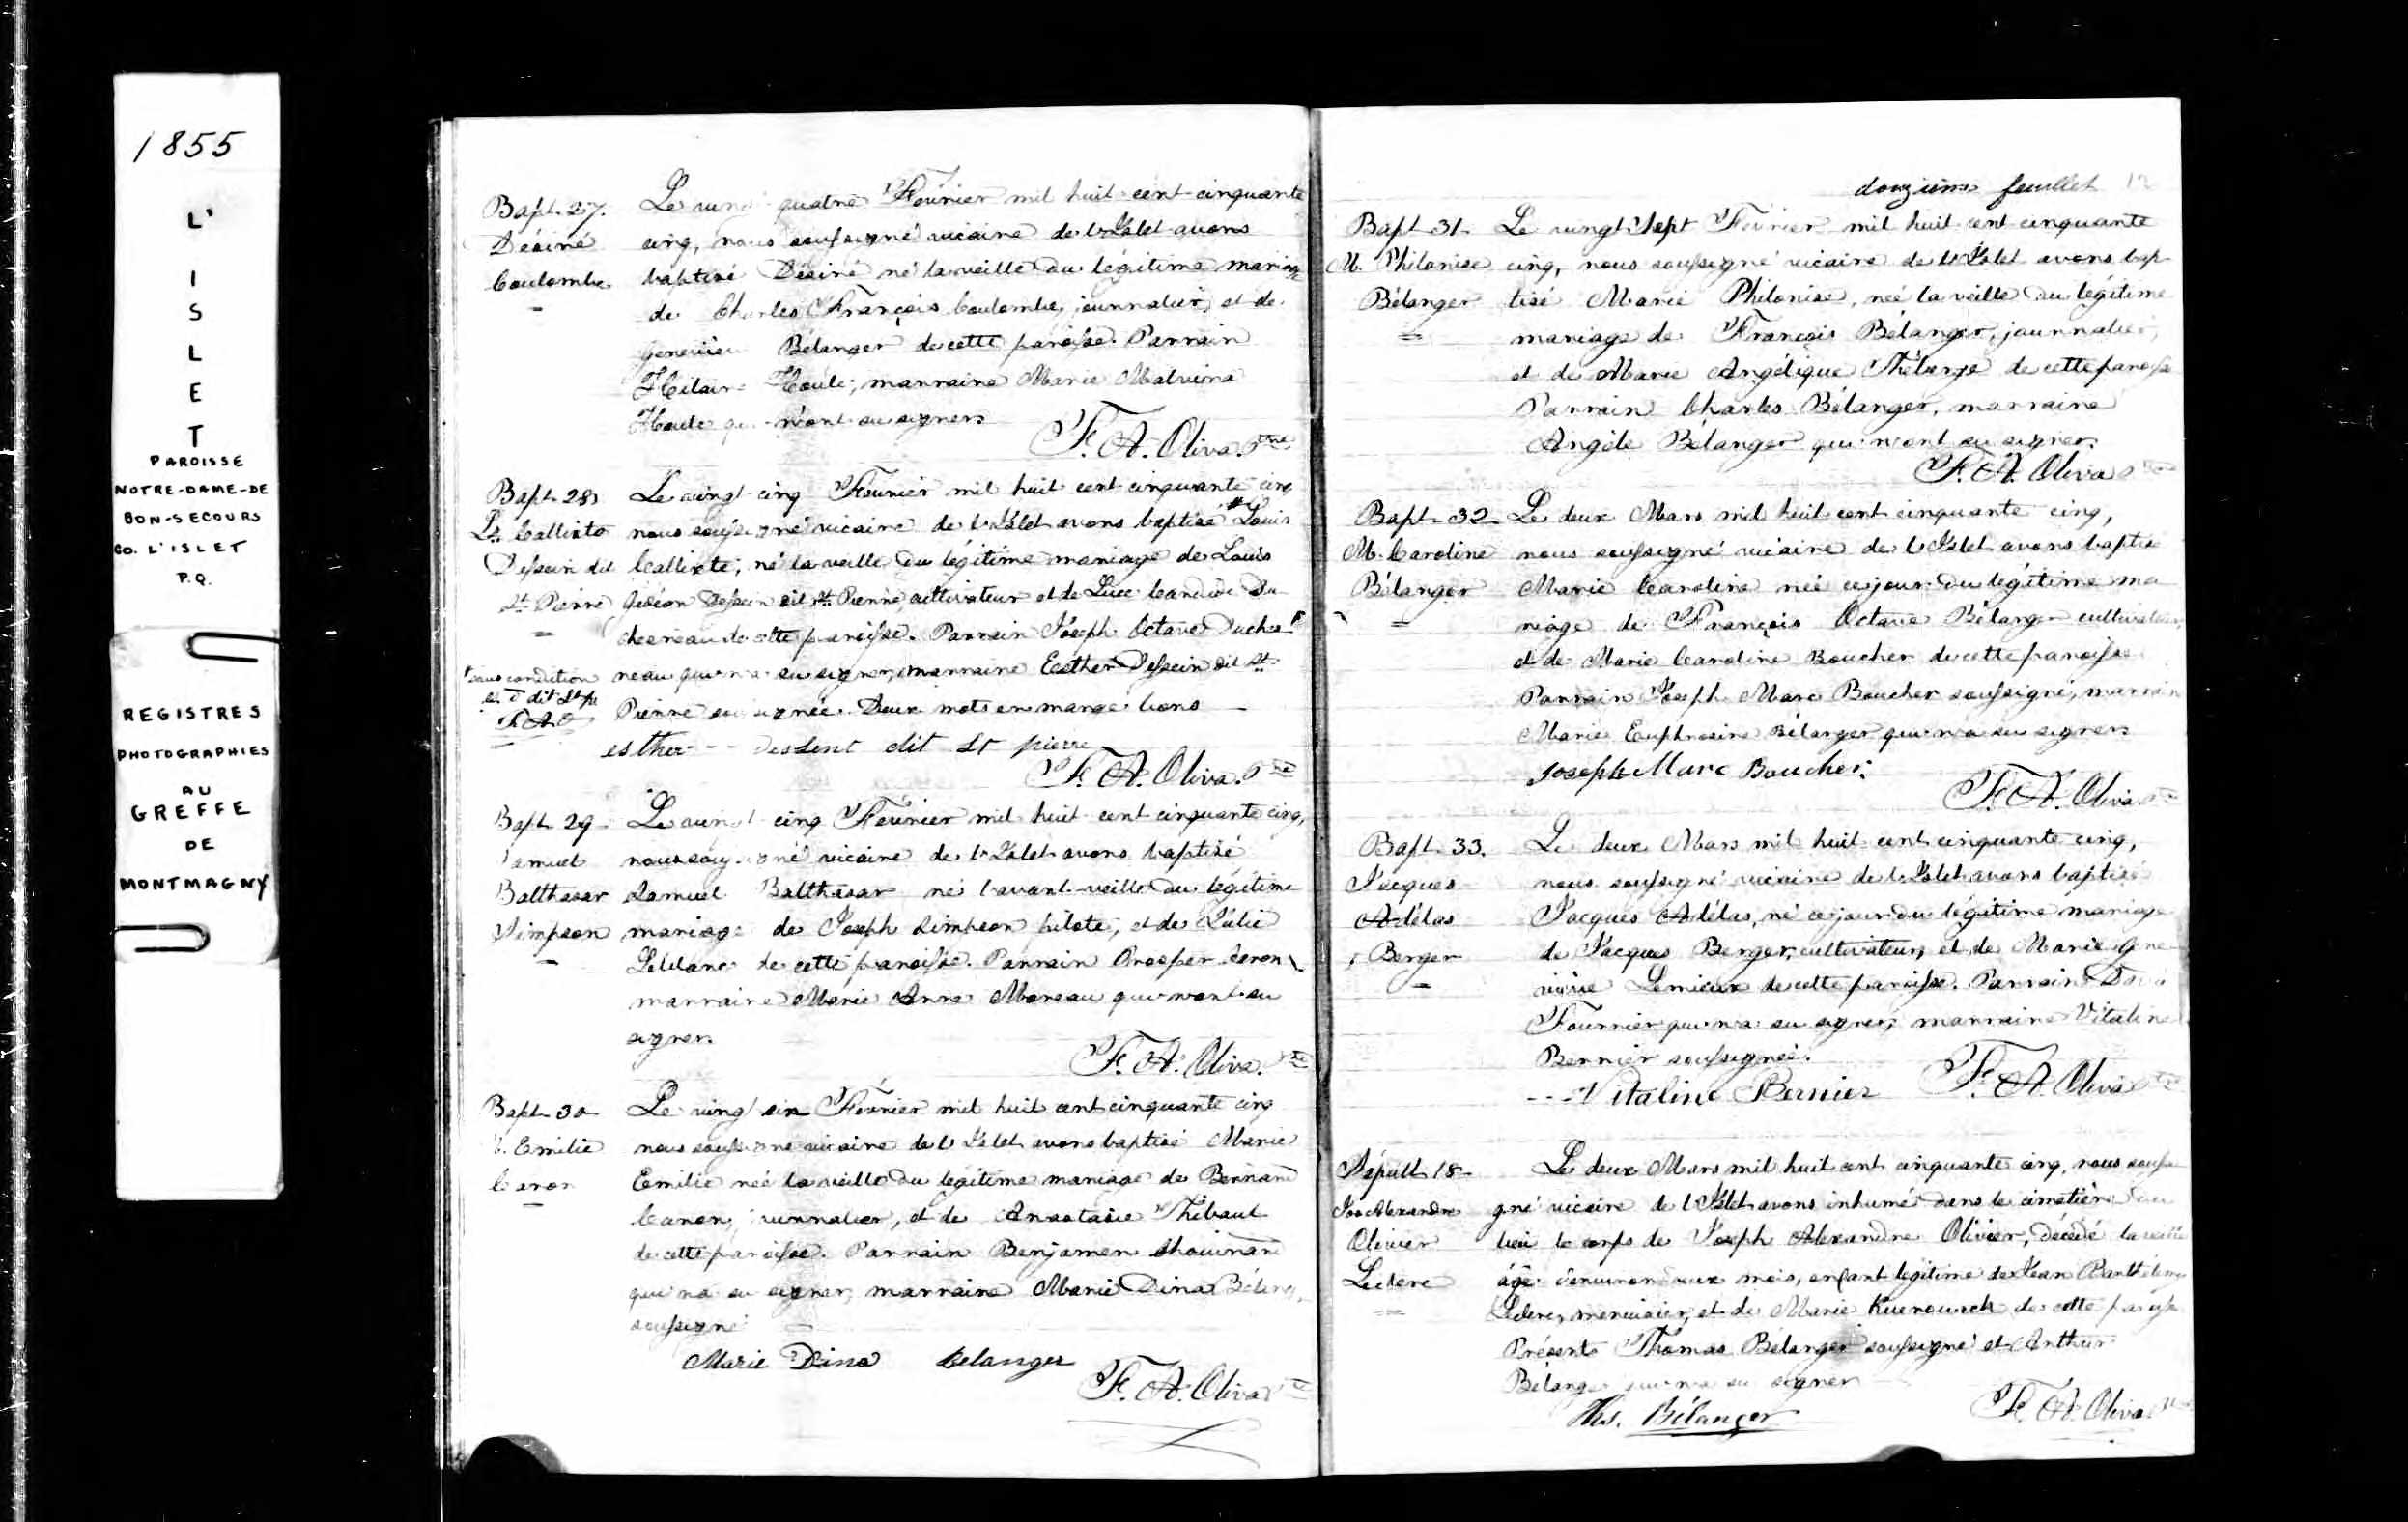 1855
L'
I
S
L
E
T
PAROISSE
NOTRE-DAME-DE
BON-SECOURS
CO. L'ISLET
P.Q.
REGISTRES
PHOTOGRAPHIES
AU
GREFFE
DE
MONTMAGNY
Bapt. 27.
Désiré
Coulombe
Le vingt quatre Février mil huit cent cinquante
cinq, nous soussigné vicaire de l'Islet avons
baptisé Désiré né la veille du légitime mariage
de Charles François Coulombe, journalier, et de
Geneviève Bélanger de cette paroisse. Parrain
Hilaire Houle; marraine Marie
Houle qui n'ont su signer.
F. A. Oliva. Ptre
Bapt. 28.
Ls. Callixte
Dessein dit
St. Pierre
* sous condition
F. A. O
Le vingt cinq Février mil huit cent cinquante cinq
nous soussigné vicaire de l'Islet avons baptisé * Louis
Callixte, né la veille du légitime mariage de Louis
Gédéon Dessein dit St. Pierre, cultivateur et de Luce Du
chesneau de cette paroisse. Parrain Joseph Octave Duches
neau qui n'a su signer, marraine Esther Dessein dit St.
Pierre soussignée. Deux mots en marge bons
esther -- dessent dit St pierre
F. A. Oliva. Ptre
Bapt. 29.
Samuel
Balthasar
Simpson
Le vingt cinq Février mil huit cent cinquante cinq,
nous soussigné vicaire de l'Islet avons baptisé
Samuel Balthasar né l'avant-veille du légitime
mariage de Joseph Simpson pilote, et de
Leblanc de cette paroisse. Parrain Prosper Caron,
marraine Marie Anne Moreau qui n'ont su
signer.
F. A. Oliva. Ptre
Bapt. 30
M. Emilie
Caron
Le vingt six Février mil huit cent cinquante cinq
nous soussigné vicaire de l'Islet avons baptisé Marie
Emilie née la veille du légitime mariage de Bernard
Caron, journalier, et de Anastasie Thibaut
de cette paroisse. Parrain Benjamen Chouinard
qui n'a su signer, marraine Marie Dina Bélanger
soussigné
Marie Dina Belanger
F. A. Oliva Ptre
douzième feuillet 12
Bapt. 31.
M. Philonise
Bélanger
Le vingt sept Février mil huit cent cinquante
cinq, nous soussigné vicaire de l'Islet avons bap
tisé Marie Philonise, née la veille du légitime
mariage de François Bélanger, journalier,
et de Marie Angélique Théberge de cette paroisse
Parrain Charles Bélanger, marraine
Angèle Bélanger qui n'ont su signer.
F. A. Oliva Ptre
Bapt. 32
M. Caroline
Bélanger
Le deux Mars mil huit cent cinquante cinq,
nous soussigné vicaire de l'Islet avons baptisé
Marie Caroline née ce jour du légitime ma
riage de François Octave Bélanger cultivateur,
et de Marie Caroline Boucher de cette paroisse
Parrain Joseph Marc Boucher soussigné, marraine
Marie Euphrosine Bélanger qui n'a su signer.
Joseph Marc Boucher.
F. A. Oliva Ptre
Bapt. 33.
Jacques
Adélas
Berger
Le deux Mars mil huit cent cinquante cinq,
nous soussigné vicaire de l'Islet avons baptisé
Jacques Adélas, né ce jour du légitime mariage
de Jacques Berger, cultivateur, et de Marie Gene
viève Lemieux de cette paroisse. Parrain
Fournier qui n'a su signer, marraine Vitaline
Bernier soussignée.
--- Vitaline Bernier
F. A. Oliva Ptre
Sépult. 18
Jos Alexandre
Olivier
Leclerc
Le deux Mars mil huit cent cinquante cinq, nous soussi
gné vicaire de l'Islet avons inhumé dans le cimetière du
lieu le corps de Joseph Alexandre Olivier, décédé la veille
âgé d'environ deux mois, enfant légitime de Jean Barthélemy
Leclerc, menuisier, et de Marie de cette paroisse
Présents Thomas Bélanger soussigné et Arthur
Bélanger qui n'a su signer
Ths. Bélanger
F. A. Oliva Ptre